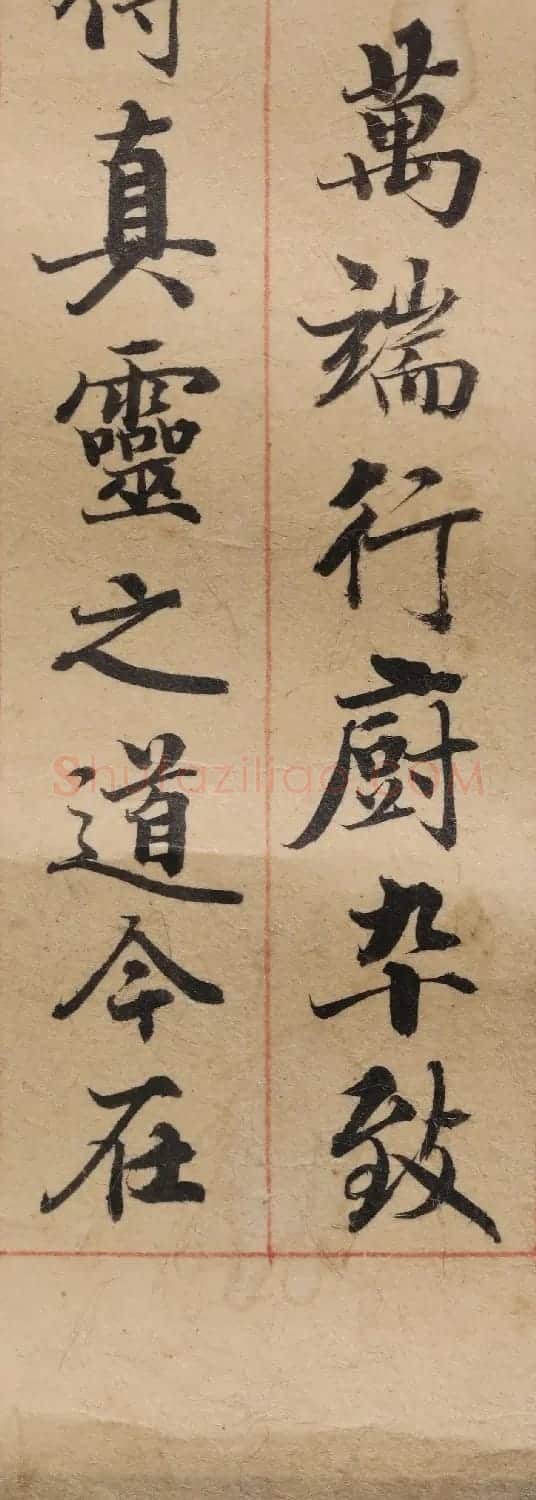 萬端行廚卒致
得真靈之道今在
Shufaziliao.COM